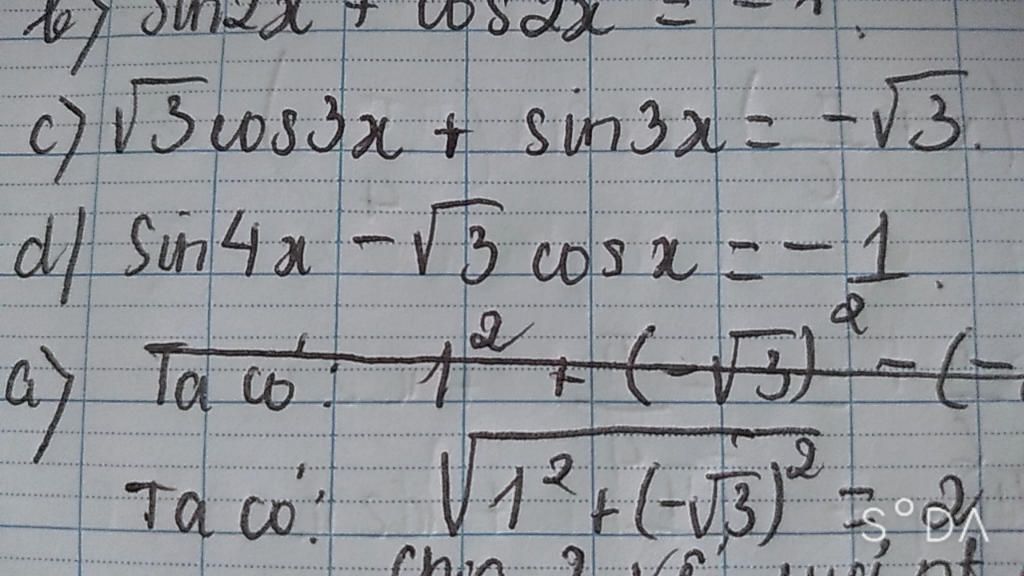 b) sin2x + cos2x = -1.
c) √3cos3x + sin3x = -√3.
d) sin4x - √3 cosx = -1.
a) Ta có: 1² + (-√3)² - (-
Ta có: √(1² + (-√3)²) = 2
S°DA
2 vế